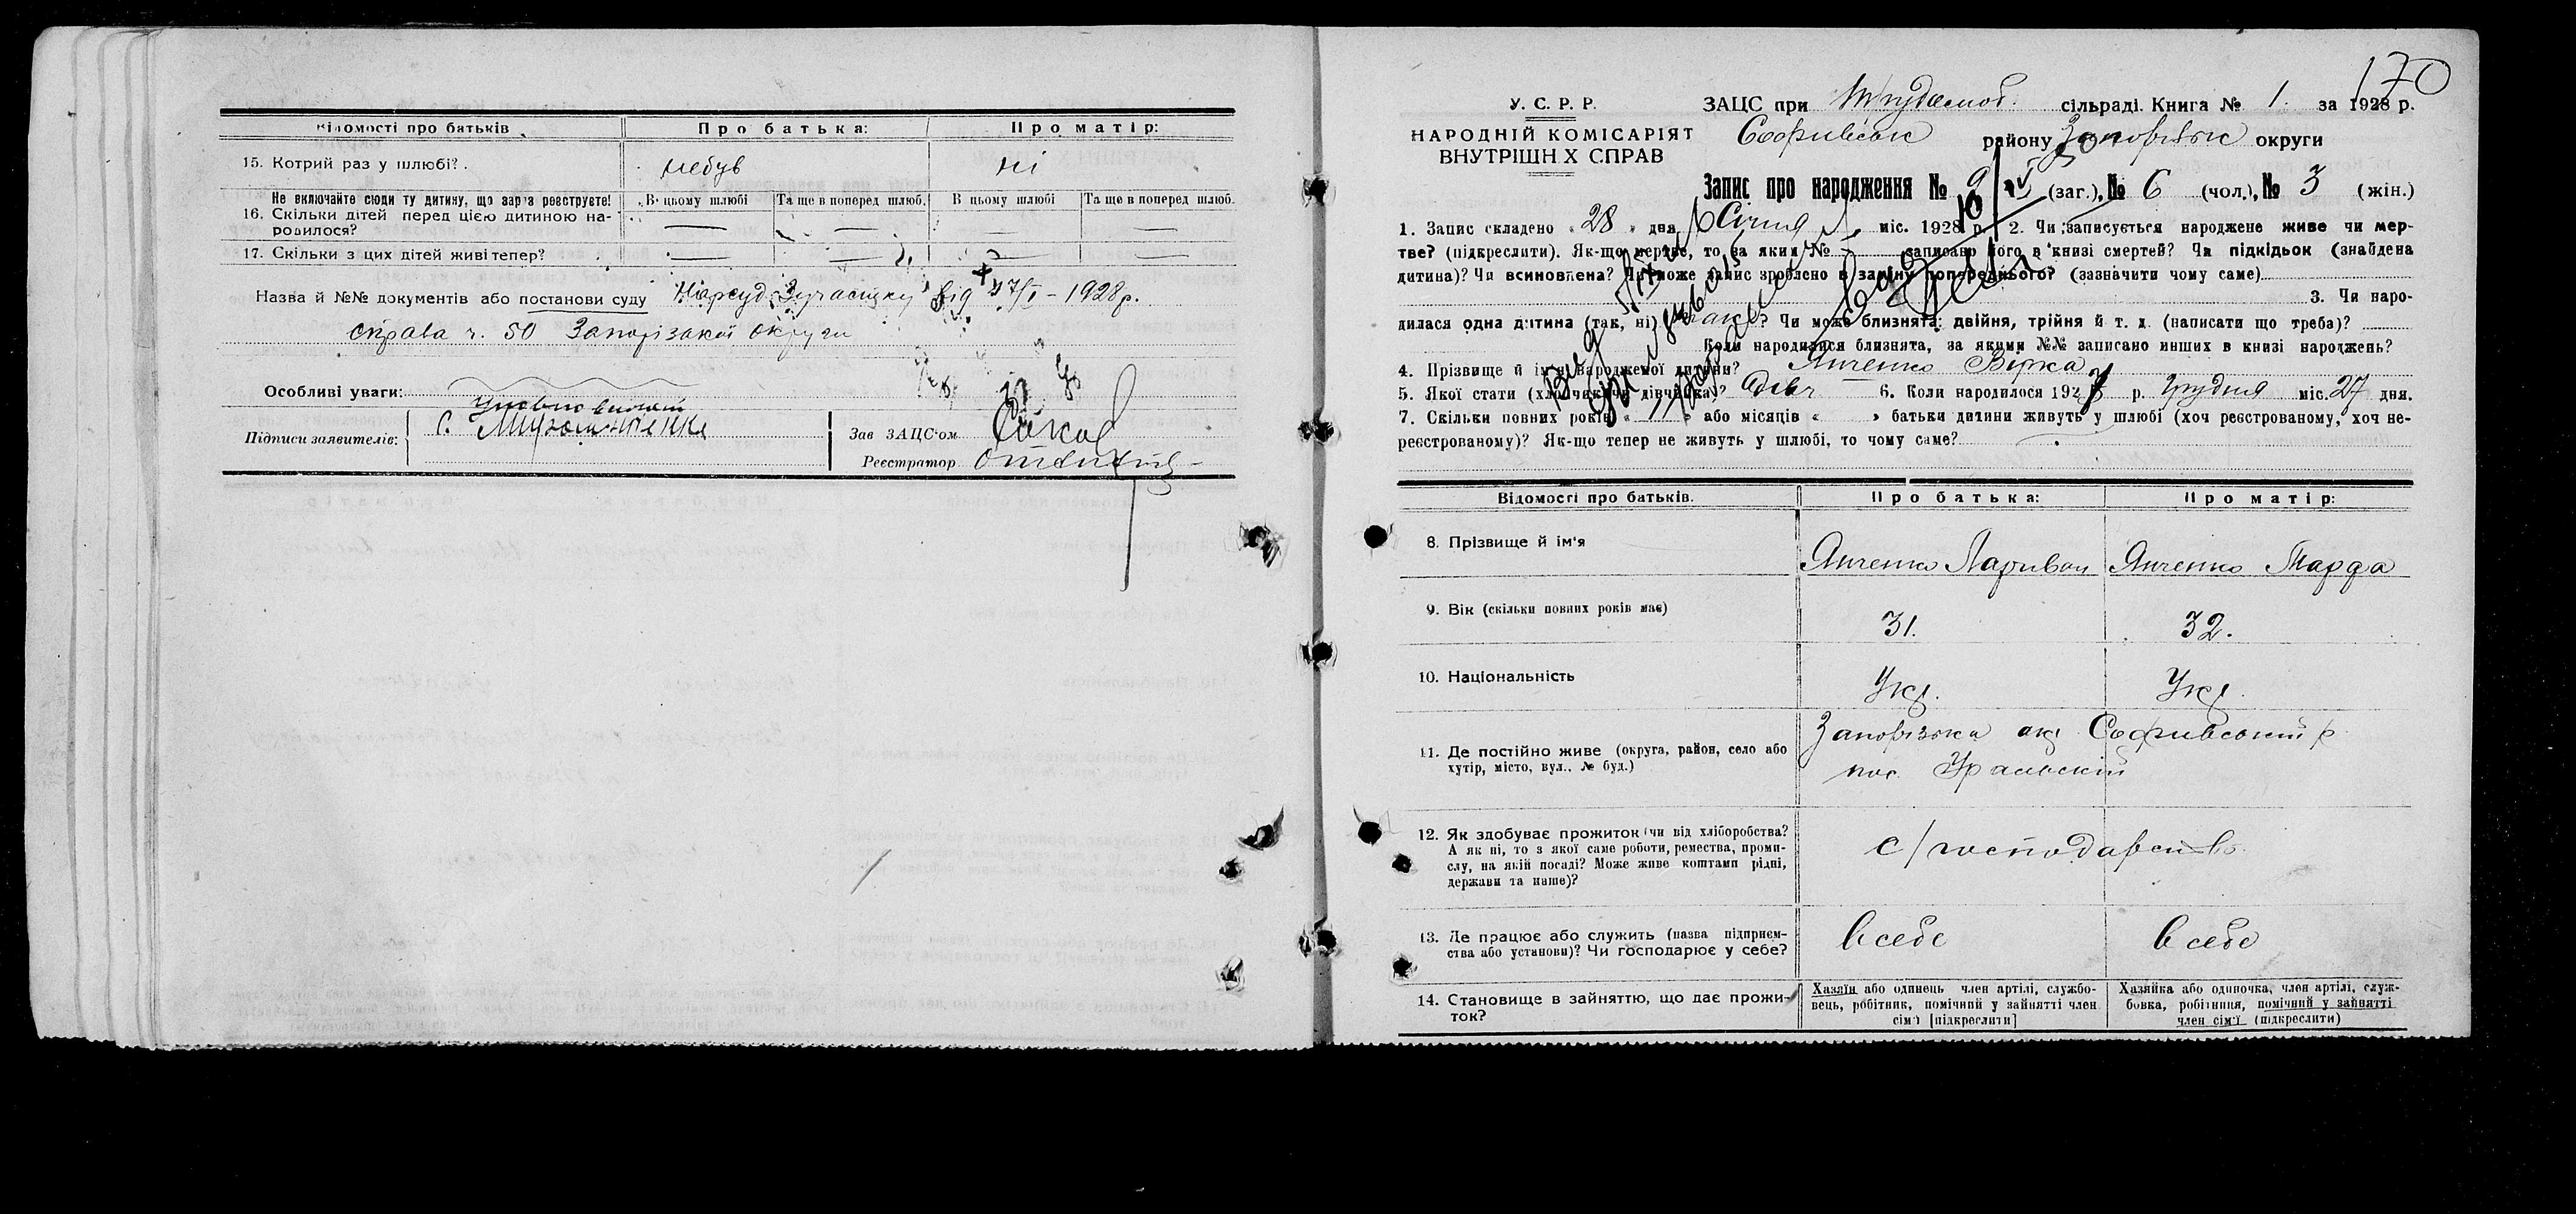 Відомості про батьків
Про батька:
Про матір:
15. Котрий раз у шлюбі?
небув
ні
Не включайте сюди ту дитину, що зараз реєструєте!
В цьому шлюбі
Та ще в поперед шлюб.
В цьому шлюбі
Та ще в поперед шлюб.
16. Скільки дітей перед цією дитиною на-
родилося?
—
—
—
—
17. Скільки з цих дітей живі тепер?
—
—
—
—
Назва й №№ документів або постанови суду Нарсуд 3 участку від 17/I – 1928 р.
справа ч. 50 Запорізької округи
Особливі уваги:
Підписи заявителів:
Зав ЗАЦС'ом
Реєстратор
170
У. С. Р. Р.
НАРОДНІЙ КОМІСАРІЯТ
ВНУТРІШН Х СПРАВ
ЗАЦС при сільраді. Книга № 1. за 1928 р.
Софиівськ району Запорізьк округи
Запис про народження № 9 (заг.), № 6 (чол.), № 3 (жін.)
1. Запис складено „28„ дня Січня міс. 1928 р. 2. Чи записується народжене живе чи мер-
тве? (підкреслити). Як-що мертве, то за яким № записано його в книзі смертей? Чи підкідьок (знайдена
дитина)? Чи всиновлена? Чи може запис зроблено в заміну попереднього? (зазначити чому саме)
3. Чи наро-
дилася одна дитина (так, ні) так? Чи може близнята: двійня, трійня й т. д. (написати що треба)?
Коли народилися близнята, за якими №№ записано инших в книзі народжень?
4. Прізвище й ім'я народженої дитини? Янченко Вірка
5. Якої стати (хлопчик чи дівчинка)? Дівч 6. Коли народилося 1927 р. Грудня міс. 27 дня.
7. Скільки повних років „ 11 „ або місяців „ „ батьки дитини живуть у шлюбі (хоч реєстрованому, хоч не-
реєстрованому)? Як-що тепер не живуть у шлюбі, то чому саме?
Відомості про батьків.
Про батька:
Про матір:
8. Прізвище й ім'я
Янченко Ларивон
Янченко Марфа
9. Вік (скільки повних років має)
31.
32.
10. Національність
Укр.
Укр.
11. Де постійно живе (округа, район, село або
хутір, місто, вул., № буд.)
Запорізька окр Софиівський р.
пос. Уральский
12. Як здобуває прожиток (чи від хліборобства?
А як ні, то з якої саме роботи, ремества, проми-
слу, на якій посаді? Може живе коштами рідні,
держави та инше)?
с/господарство
13. Де працює або служить (назва підприєм-
ства або установи)? Чи господарює у себе?
в себе
в себе
14. Становище в зайняттю, що дає прожи-
ток?
Хазяїн або одинець член артілі, службо-
вець, робітник, помічний у зайнятті член
сім'ї [підкреслити]
Хазяйка або одиночка, член артілі, служ-
бовка, робітниця, помічний у зайнятті
член сім'ї (підкреслити)